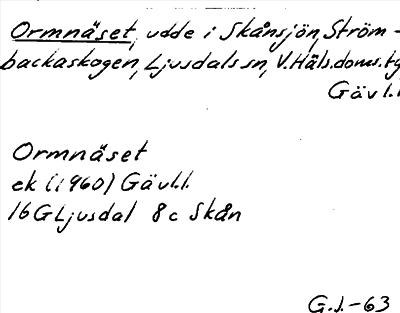 Ormnäset, udde i Skånsjön, Ström-
backaskogen, Ljusdals sn, V. Häls. doms. tg,
Gävl.l.
Ormnäset
ek (1960) Gävl.l.
16G Ljusdal 8c Skån
G.I.-63